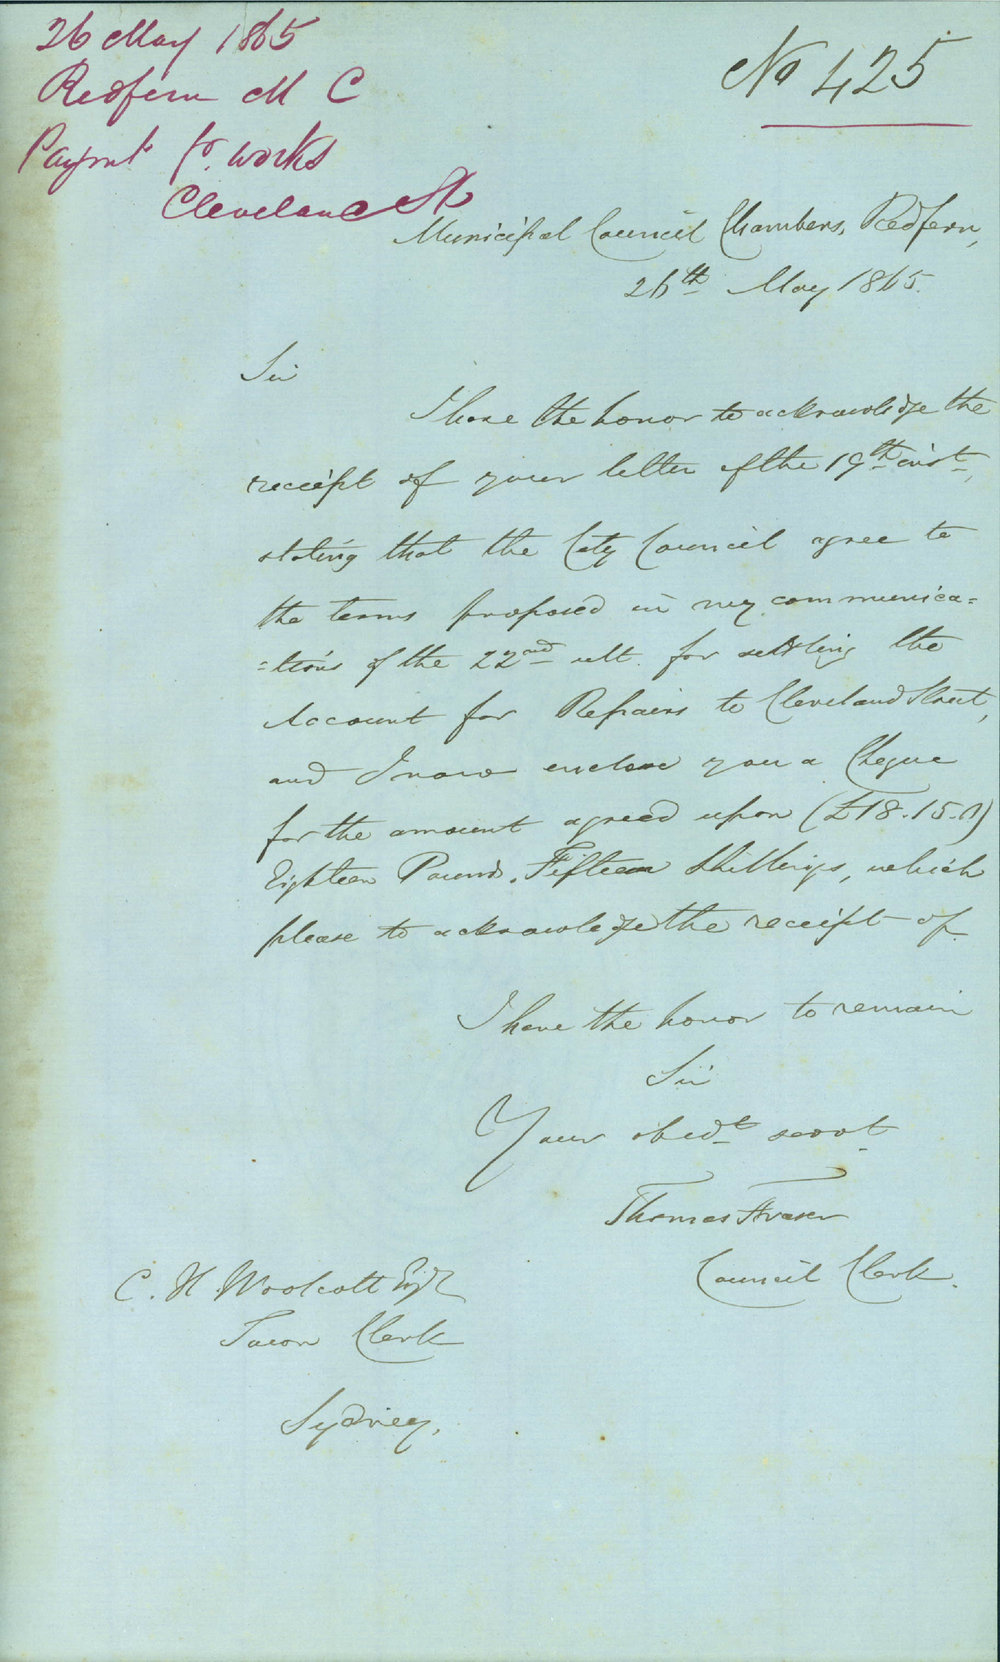 26 May 1865
Redfern M C
Paymt fr. works
Cleveland St
No 425
Municipal Council Chambers, Redfern,
26th May 1865.
Sir
I have the honor to acknowledge the
receipt of your letter of the 19th inst,
stating that the City Council agree to
the terms proposed in my communica=
=tions of the 22nd ult. for settling the
Account for Repairs to Cleveland Street,
and I now enclose you a Cheque
for the amount agreed upon (£18.15.0)
Eighteen Pounds, Fifteen Shillings, which
please to acknowledge the receipt of.
I have the honor to remain
Sir
Your obedt servt
Thomas Fraser
Council Clerk.
C. H. Woolcott Esqr
Town Clerk
Sydney.